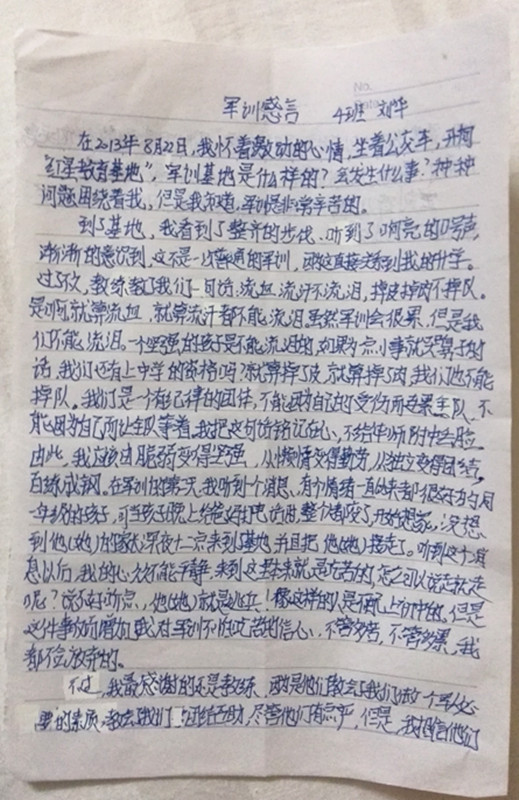 No.
军训感言 4班 刘华
在2013年8月22日,我怀着激动的心情,坐着公交车,开向
“红星教育基地”,军训基地是什么样的?会发生什么事?种种
问题困绕着我。但是我知道,军训是非常辛苦的。
到了基地,我看到了整齐的步伐、听到了响亮的口号声,
渐渐的意识到,这不是一次普通的军训,因为这直接关系到我的升学。
过了不久,教练教了我们一句话,流血流汗不流泪,掉皮掉肉不掉队。
是啊,就算流血,就算流汗都不能流泪。虽然军训会很累,但是我
们不能流泪。一个坚强的孩子是不能流泪的,如果为一点小事就哭鼻子的
话,我们还有上中学的资格吗?就算掉了皮,就算掉了肉,我们也不能
掉队。我们是一个有纪律的团体,不能因为自己的受伤而连累全队、不
能因为自己而让全队等着。我把这句话铭记在心,不给华师附中丢脸。
由此,我应该由脆弱变得坚强,从懒惰变得勤劳,从独立变得团结,
百练成钢。在军训的第二天,我听到个消息,有个情绪一直以来都很好的同
年级的孩子,可当孩子晚上给爸妈打电话时,整个都变了,开始想家。没想
到他(她)的家长深夜十二点来到基地,并且把他(她)接走了。听到这个消
息以后,我的心久久不能平静,来到这里本来就是吃苦的,怎么可以说走就走
呢?说不好听点,他(她)就是逃兵!像这样的人是不配上初中的。但是
这件事反而增加了我对军训不怕吃苦的信心,不管多苦,不管多累,我
都不会放弃的。
不过,我最感谢的还是教练、因为是他们教会了我们做一个军人必
要的素质,教会了我们团结互助,尽管他们有点严,但是,我相信他们